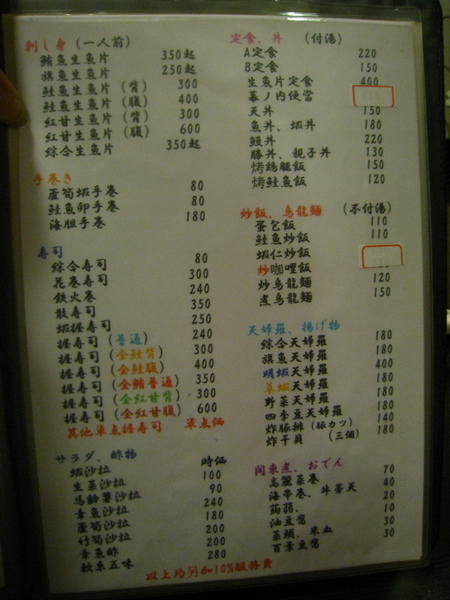 刺し身 (一人前)
鮪魚生魚片 350起
旗魚生魚片 250起
鮭魚生魚片 (背) 300
鮭魚生魚片 (腹) 400
紅甘生魚片 (背) 300
紅甘生魚片 (腹) 600
綜合生魚片 350起
手巻き
蘆筍蝦手卷 80
鮭魚卵手卷 80
海胆手卷 180
寿司
綜合寿司 80
花卷寿司 300
鉄火卷 240
散寿司 350
蝦握寿司 250
握寿司 (普通) 240
握寿司 (全鮭背) 300
握寿司 (全鮭腹) 400
握寿司 (全鮪普通) 350
握寿司 (全紅甘背) 300
握寿司 (全紅甘腹) 600
其他单点握寿司 单点価
サラダ、酢物
蝦沙拉 時価
生菜沙拉 100
馬齡薯沙拉 90
章魚沙拉 240
蘆筍沙拉 180
竹筍沙拉 200
章魚酢 200
秋糸五味 280
定食、丼 (付湯)
A定食 220
B定食 150
生魚片定食 400
幕ノ内便當
天丼 150
魚丼、蝦丼 180
鰻丼 220
勝丼、親子丼 130
烤鷄腿飯 150
烤鮭魚飯 120
炒飯、烏龍麵 (不付湯)
蛋包飯 110
鮭魚炒飯 110
蝦仁炒飯
炒咖哩飯
炒烏龍麵 120
煮烏龍麵 150
天婦羅、揚げ物
綜合天婦羅 180
旗魚天婦羅 180
明蝦天婦羅 400
草蝦天婦羅 180
野菜天婦羅 180
四季豆天婦羅 180
炸豚排 (豚カツ) 140
炸干貝 (三個) 180
関東煮、おでん
高麗菜卷 70
海帯卷、牛蒡天 40
蒟蒻、 20
油豆腐 10
菜頭、米血 30
百景豆腐 30
以上均另加10%服務費